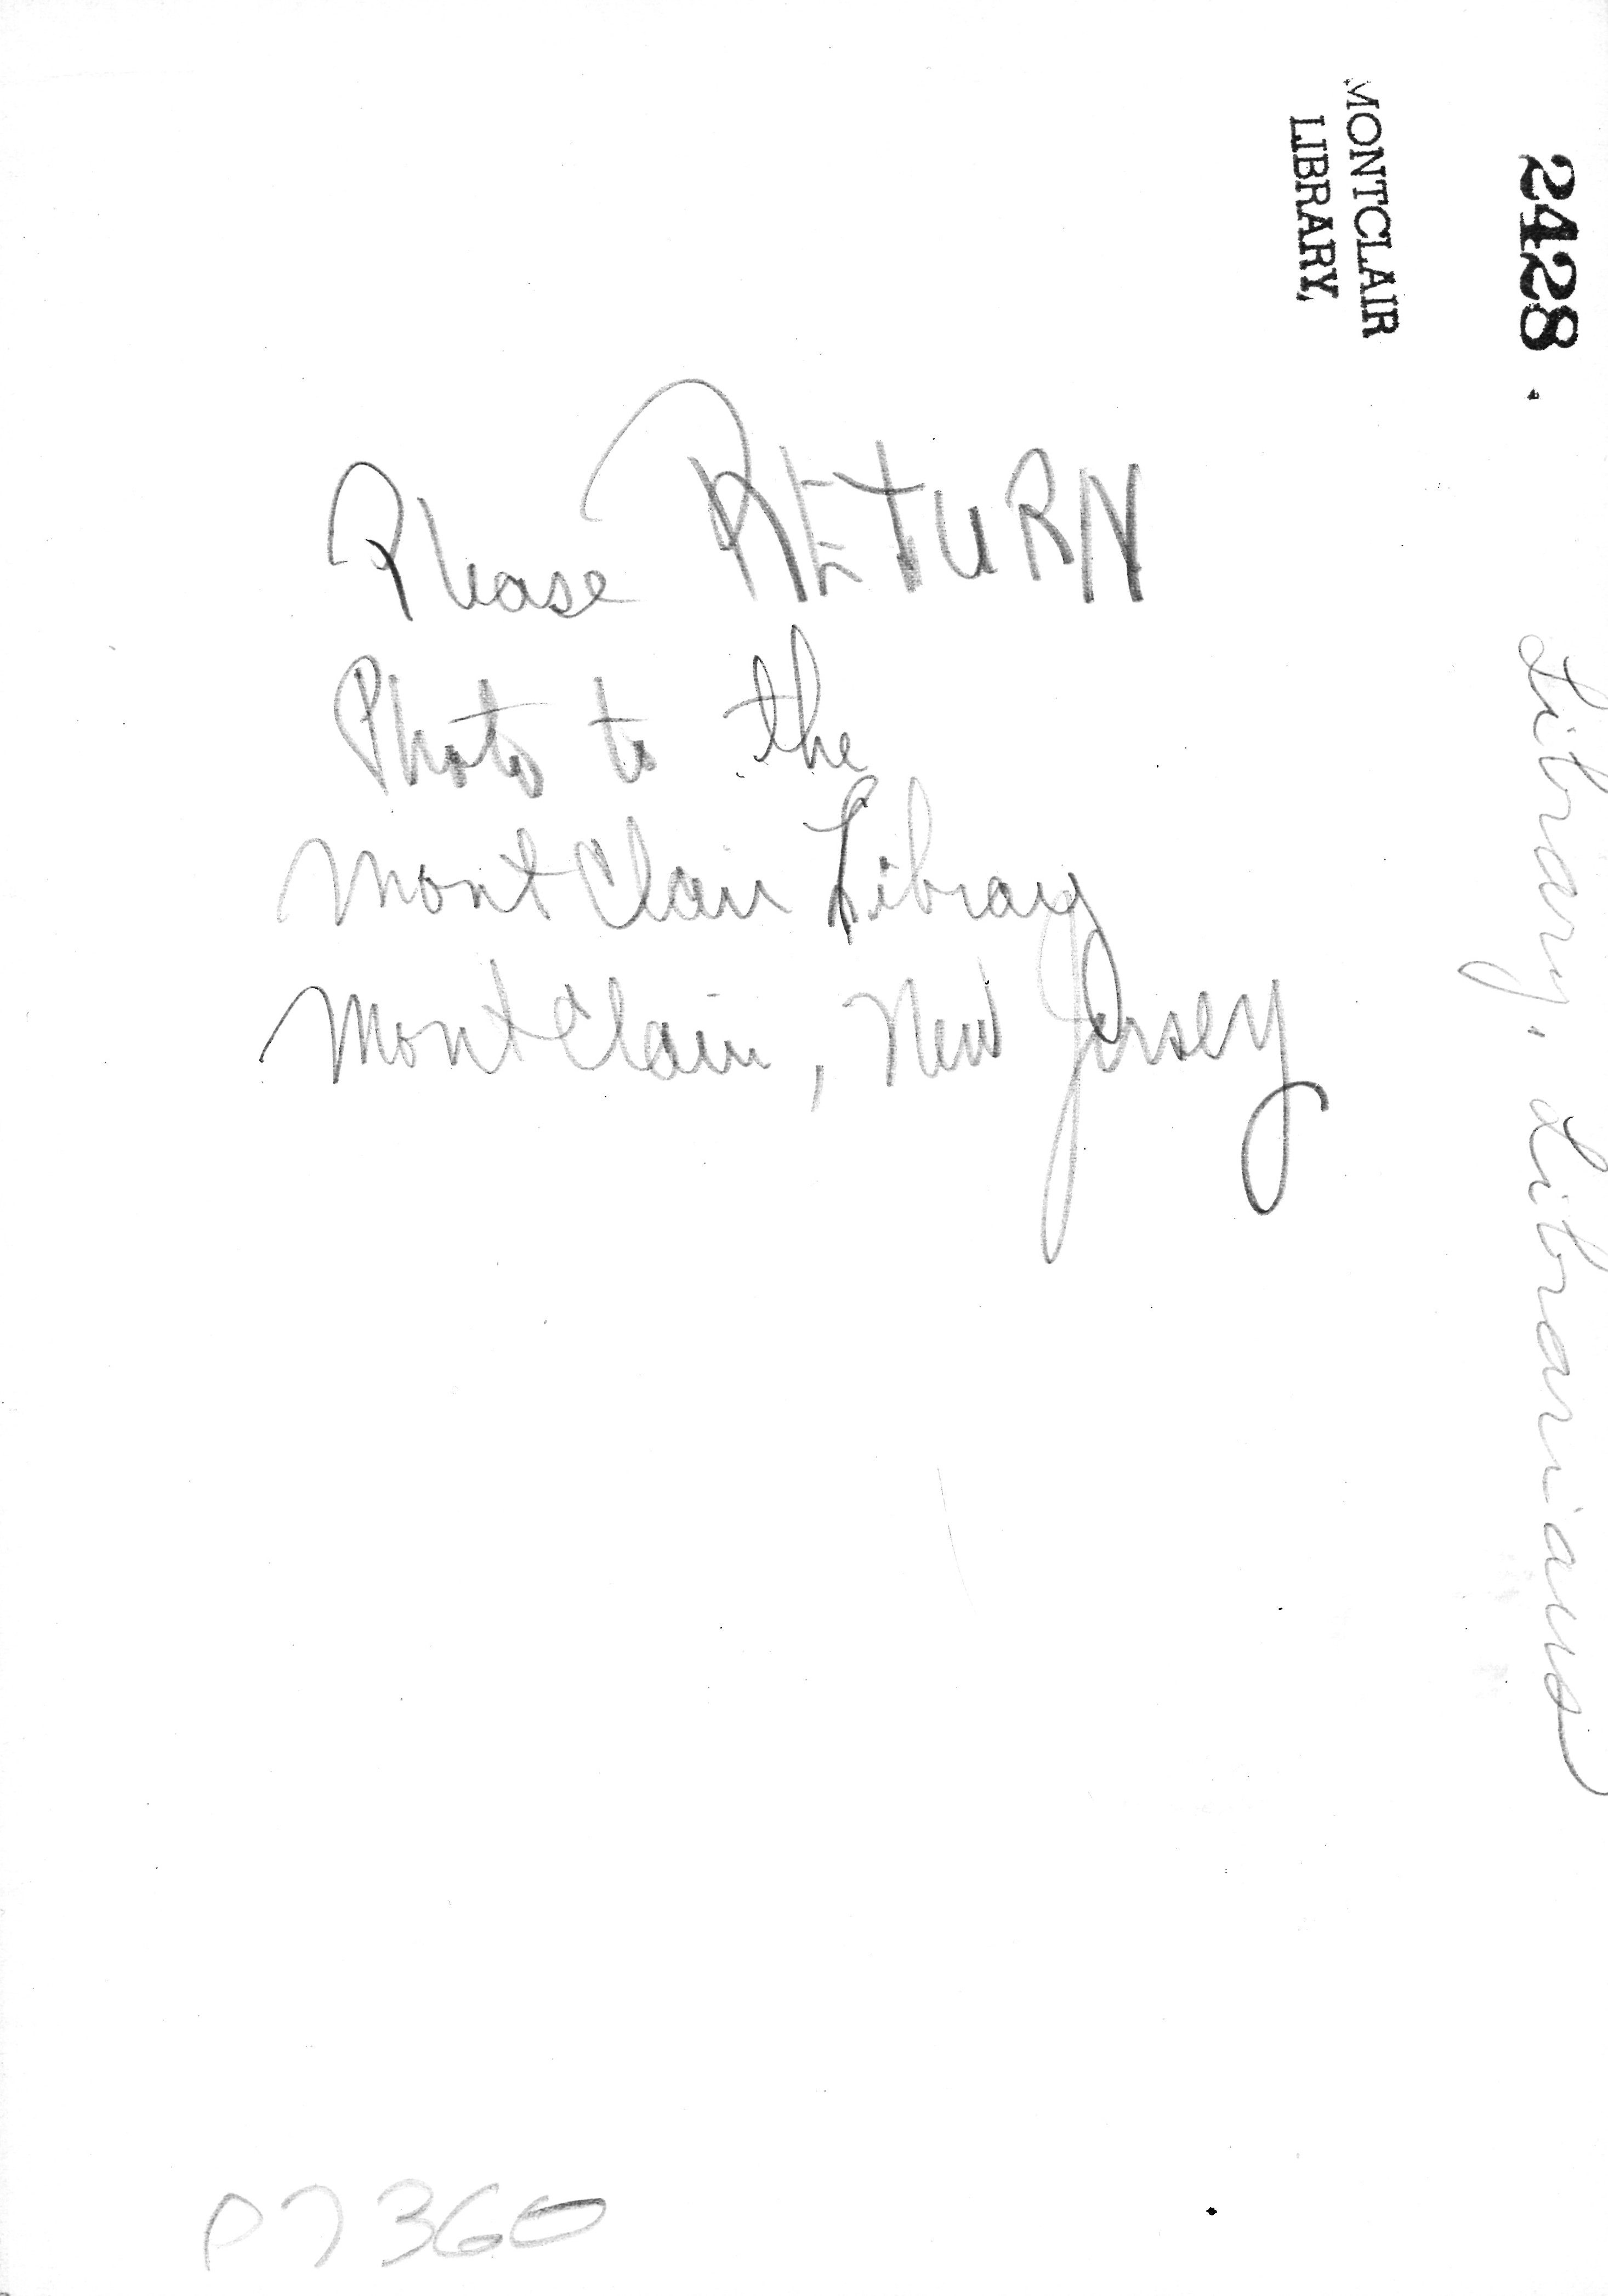 2428.
MONTCLAIR
LIBRARY,
Please RETURN
Photo to the
MontClair Library
MontClair, New Jersey
Library, Librarians
P7360